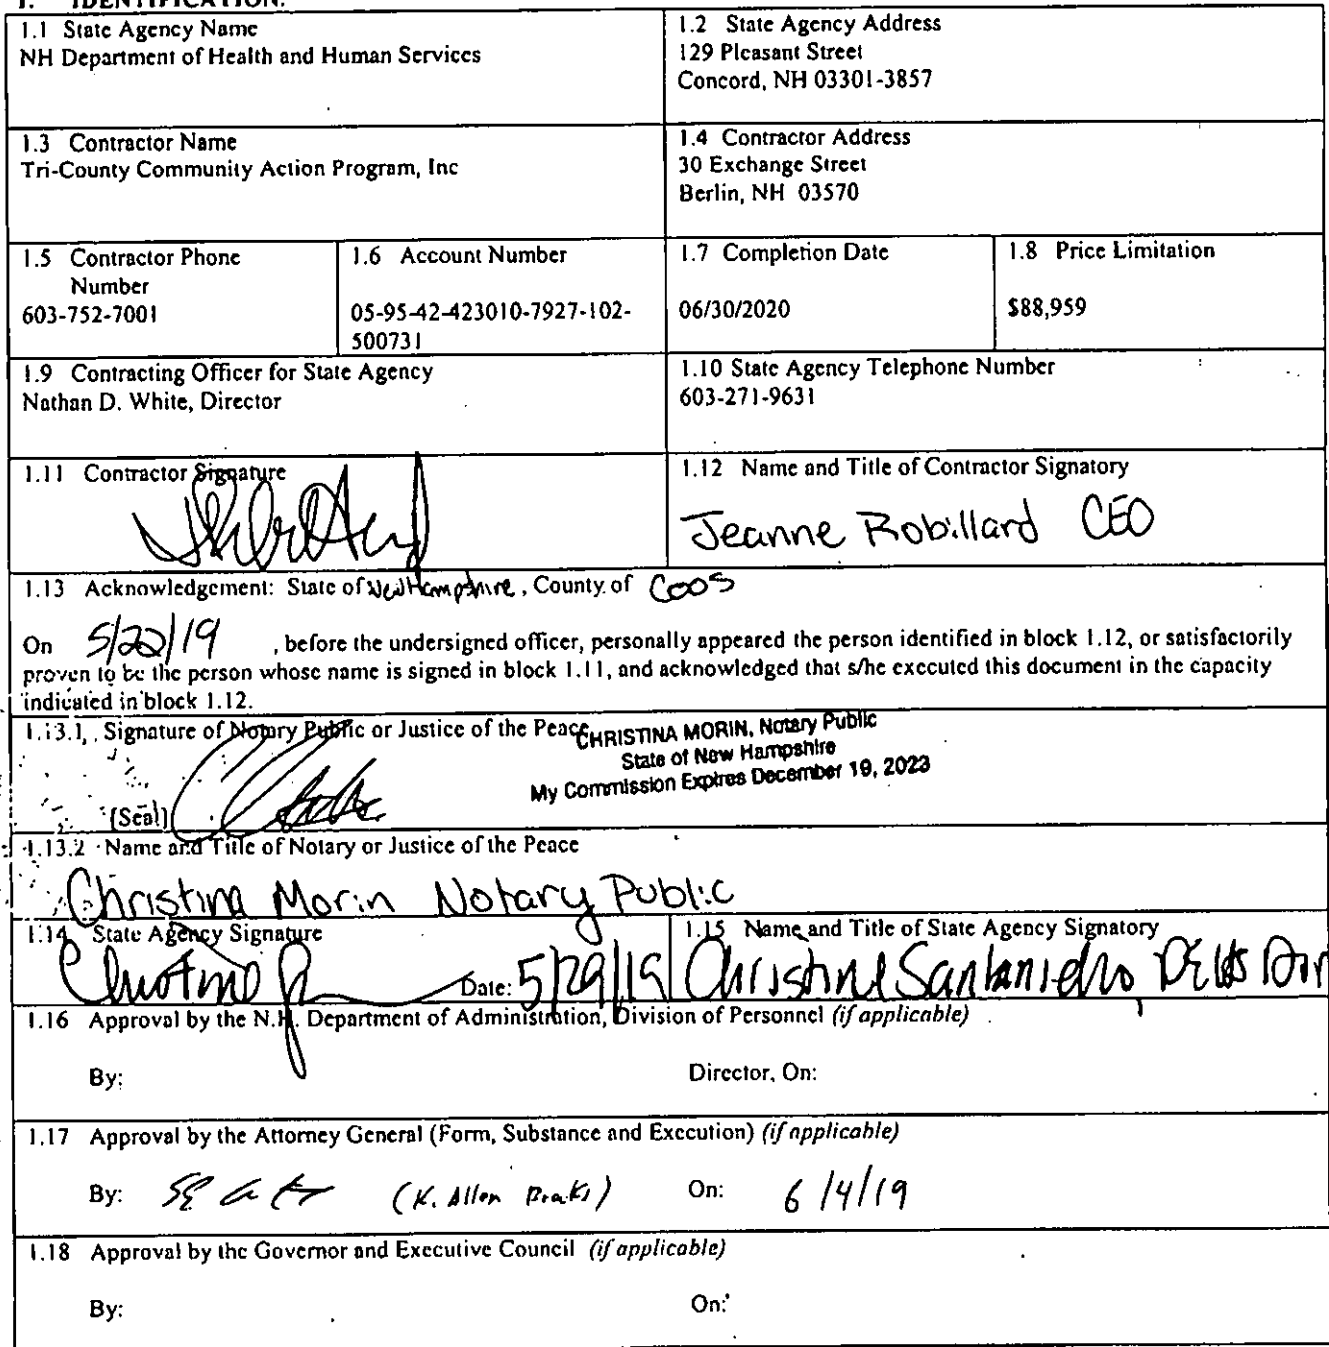 I. IDENTIFICATION.
1.1 State Agency Name
NH Department of Health and Human Services
1.2 State Agency Address
129 Pleasant Street
Concord, NH 03301-3857
1.3 Contractor Name
Tri-County Community Action Program, Inc
1.4 Contractor Address
30 Exchange Street
Berlin, NH 03570
1.5 Contractor Phone
Number
603-752-7001
1.6 Account Number
05-95-42-423010-7927-102-
500731
1.7 Completion Date
06/30/2020
1.8 Price Limitation
$88,959
1.9 Contracting Officer for State Agency
Nathan D. White, Director
1.10 State Agency Telephone Number
603-271-9631
1.11 Contractor Signature
1.12 Name and Title of Contractor Signatory
Jeanne Robillard CEO
1.13 Acknowledgement: State of New Hampshire, County of Coos
On 5/22/19 , before the undersigned officer, personally appeared the person identified in block 1.12, or satisfactorily
proven to be the person whose name is signed in block 1.11, and acknowledged that s/he executed this document in the capacity
indicated in block 1.12.
1.13.1 Signature of Notary Public or Justice of the Peace
CHRISTINA MORIN, Notary Public
State of New Hampshire
My Commission Expires December 19, 2023
[Seal]
1.13.2 Name and Title of Notary or Justice of the Peace
Christina Morin Notary Public
1.14 State Agency Signature
Date: 5/29/19
1.15 Name and Title of State Agency Signatory
Christine Santaniello,
1.16 Approval by the N.H. Department of Administration, Division of Personnel (if applicable)
By: Director, On:
1.17 Approval by the Attorney General (Form, Substance and Execution) (if applicable)
By: (K. Allen On: 6/4/19
1.18 Approval by the Governor and Executive Council (if applicable)
By: On: